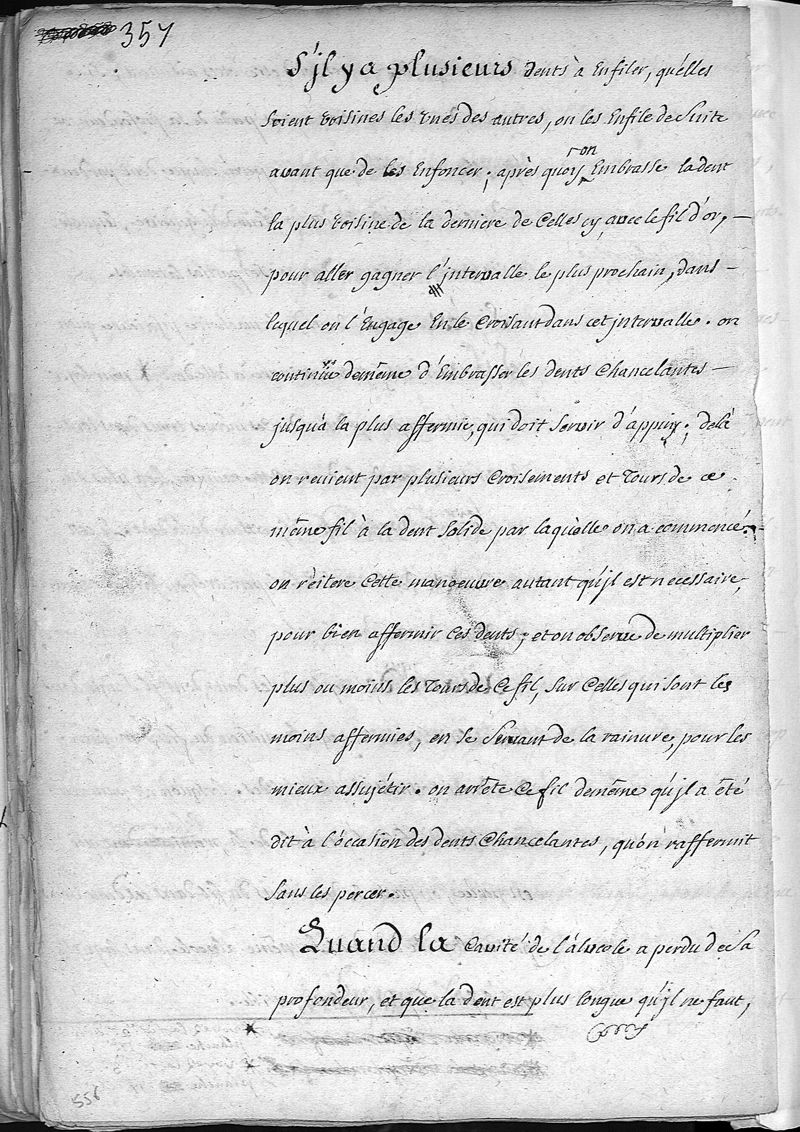 357
S'jl y a plusieurs dents à Enfiler, qu'elles
soient voisines les unes des autres, on les Enfile de Suite
avant que de les Enfoncer; après quoy on Embrasse la dent
la plus voisine de la derniere de Celles cy, avec le fil d'or,
pour aller gagner l'jntervalle le plus prochain, dans
lequel on l'Engage En le Croisant dans cet jntervalle. on
continüe demême d'Embrasser les dents Chancelantes
jusqu'à la plus affermie, qui doit servir d'appuy; delà
on revient par plusieurs Croisements et Tours de ce
même fil à la dent Solide par laquelle on a commencé.
on réitere Cette manoeuvre autant qu'jl est necessaire,
pour bien affermir ces dents; et on observe de multiplier
plus ou moins les Tours de Ce fil, sur Celles qui sont les
moins affermies, en se Servant de la rainure, pour les
mieux assujétir. on arrête Ce fil demême qu'jl a été
dit à l'occasion des dents Chancelantes, qu'on raffermit
sans les percer.
Quand la Cavité de l'alveole a perdu de sa
profondeur, et que la dent est plus longue qu'jl ne faut,
556